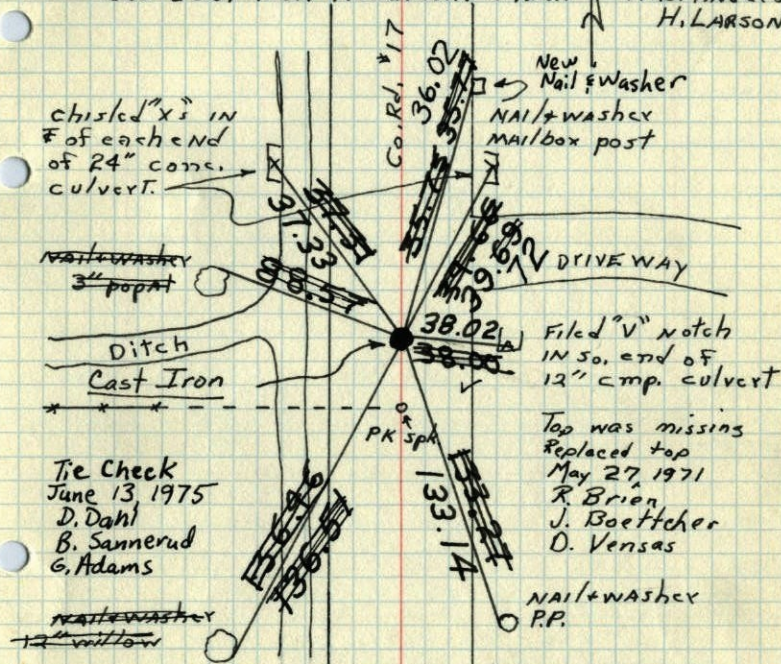 H. LARSON
Co. Rd. #17
36.02
New
Nail & Washer
NAIL & WASHER
MAILbox post
chisled "X's" IN
℄ of each end
of 24" conc.
culvert.
37.33
NAIL & WASHER
3" popal
88.51
39.68
39.69
72
DRIVEWAY
38.02
38.00
Ditch
Cast Iron
Filed "V" Notch
IN so. end of
12" cmp. culvert
PK spk
Top was missing
Replaced top
May 27, 1971
R. Brien
J. Boettcher
D. Vensas
Tie Check
June 13, 1975
D. Dahl
B. Sannerud
G. Adams
136.96
136.51
133.27
133.14
NAIL & WASHER
P.P.
NAIL & WASHER
12" willow